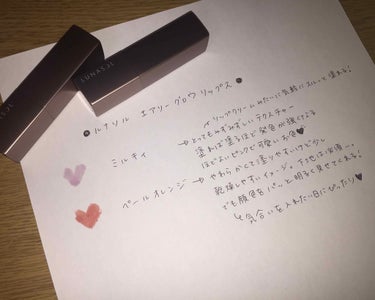 LUNASOL
LUNASOL
ルナソル エアリーグロウ リップス
リップクリームみたいに気軽にスルッと塗れる!
ミルキィ →とってもみずみずしいテクスチャー
塗れば塗るほど発色が強くなる
ほどよいピンクで可愛いお色♥
ペールオレンジ →やわらかくて塗りやすいけど少し
乾燥しやすいイメージ。下地は必須…。
でも顔色をパッと明るく見せてくれる!
を気合いを入れたい日にぴったり♥